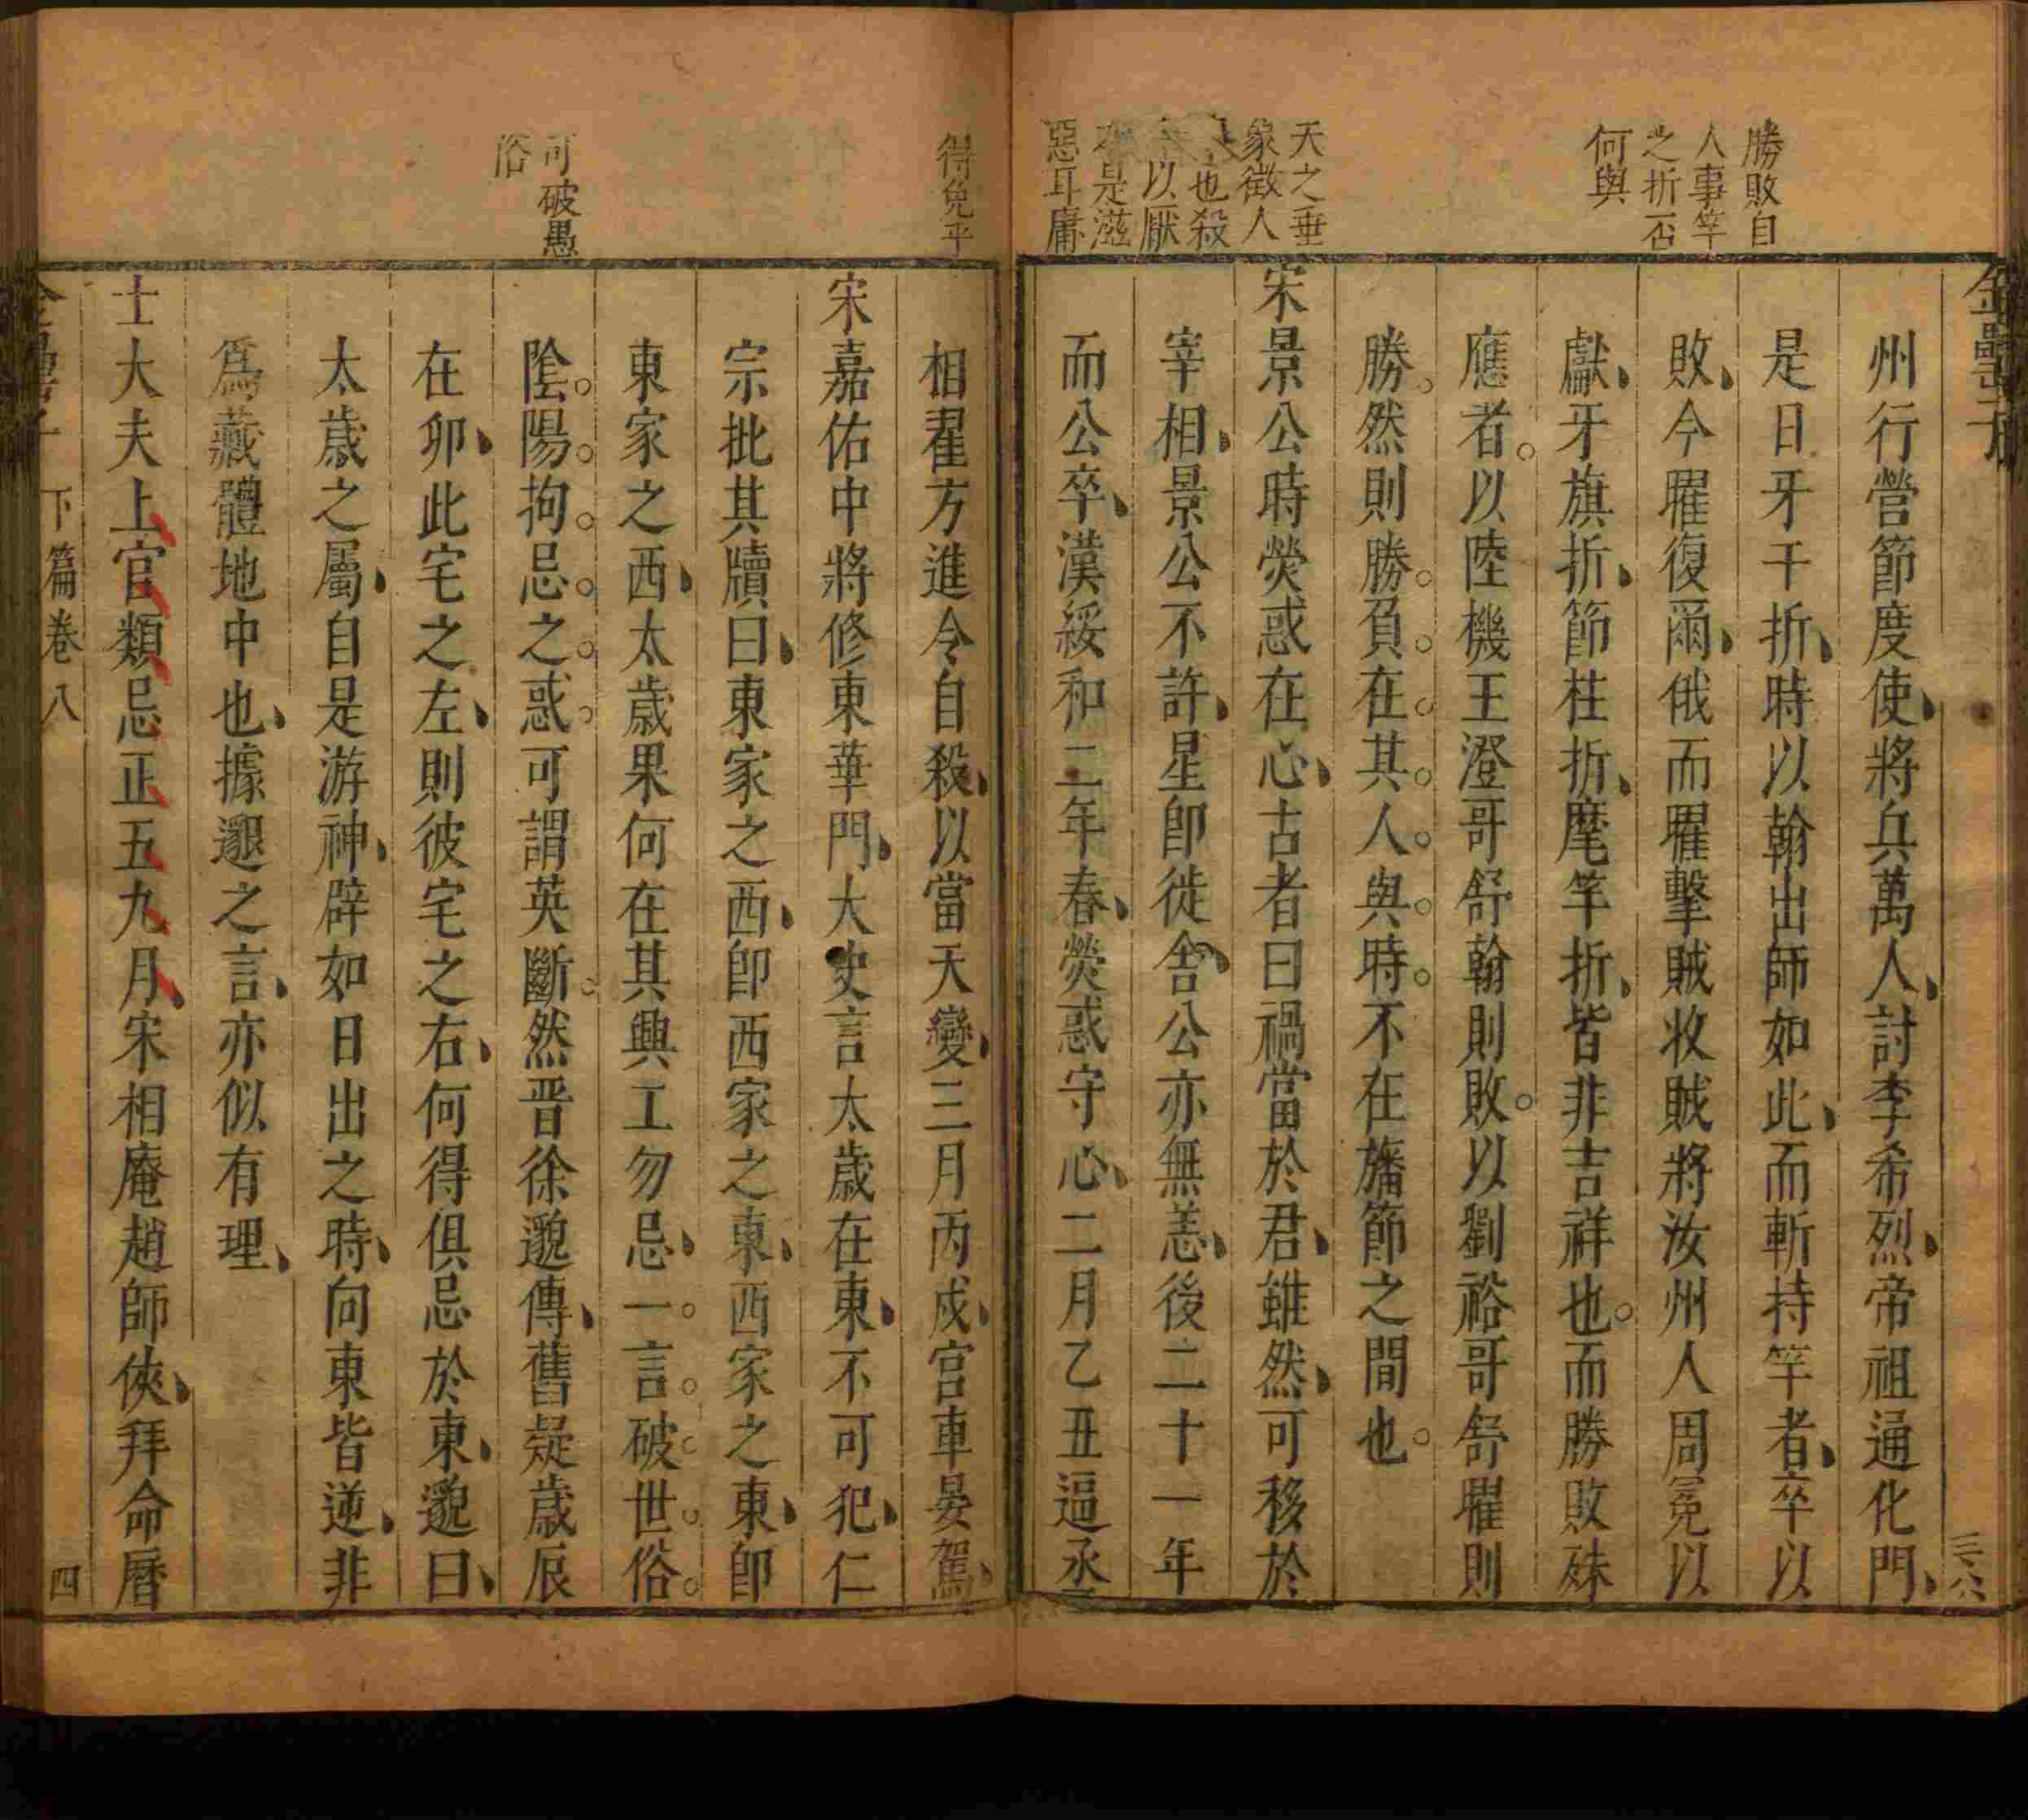 勝敗自
人事竿
之折否
何與
天之垂
象徵人
也殺
以厭
是滋
惡耳庸
州行營節度使將兵萬人討李希烈帝祖通化門
是日牙干折時以翰出師如此而斬持竿者卒以
敗今曜復爾俄而曜擊賊收賊將汝州人周冕以
獻牙旗折節柱折麾竿折皆非吉祥也而勝敗殊
應者以陸機王澄哥舒翰則敗以劉裕哥舒曜則
勝然則勝負在其人與時不在旛節之間也
宋景公時熒惑在心古者曰禍當於君雖然可移於
宰相景公不許星即徙舍公亦無恙後二十一年
而公卒漢綏和二年春熒惑守心二月乙丑逼丞
得免乎
可破愚
俗
相翟方進令自殺以當天變三月丙戌宮車晏駕
宋嘉佑中將修東華門太史言太歲在東不可犯仁
宗批其牘曰東家之西即西家之東西家之東即
東家之西太歲果何在其興工勿忌一言破世俗
陰陽拘忌之惑可謂英斷然晋徐邈傳舊疑歲辰
在卯此宅之左則彼宅之右何得俱忌於東邈曰
太歲之屬自是游神辟如日出之時向東皆逆非
爲藏體地中也據邈之言亦似有理
士大夫上官類忌正五九月宋相庵趙師俠拜命曆
下篇卷八
四